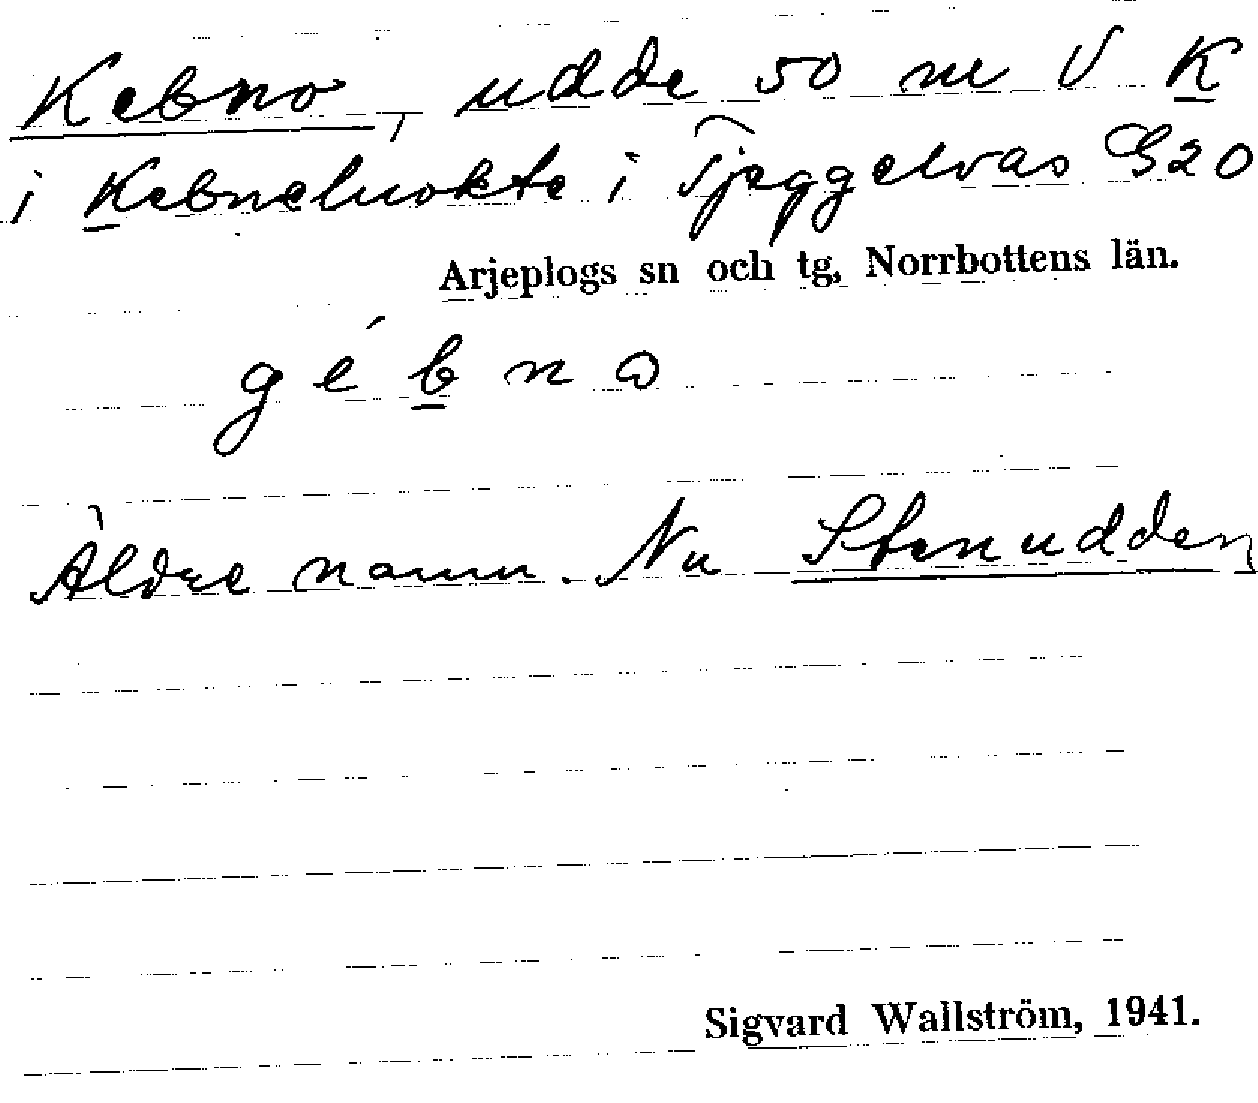 Kebno, udde 50 m V K
i Kebneluokte i Tjeggelvas G20
Arjeplogs sn och tg, Norrbottens län.
gébnɷ
Äldre namn. Nu Stenudden
Sigvard Wallström, 1941.